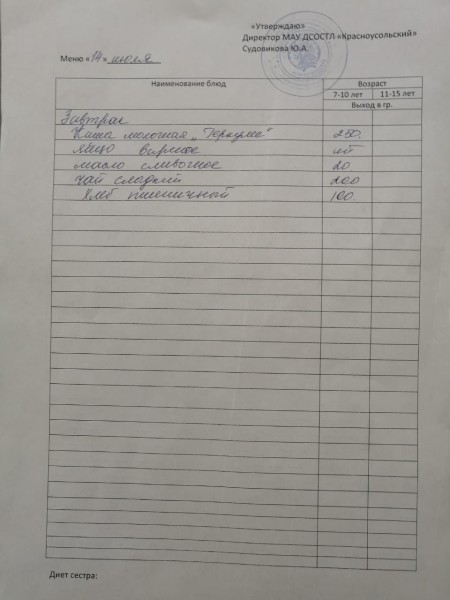 «Утверждаю»
Директор МАУ ДСОСТЛ «Красноусольский»
Судовикова Ю.А.
Меню «14» июля
Наименование блюд Возраст
7-10 лет 11-15 лет
Выход в гр.
Завтрак
Каша молочная „Геркулес" 250
яйцо варное шт
масло сливочное 20
чай сладкий 200
Хлеб пшеничной 100
Диет сестра: